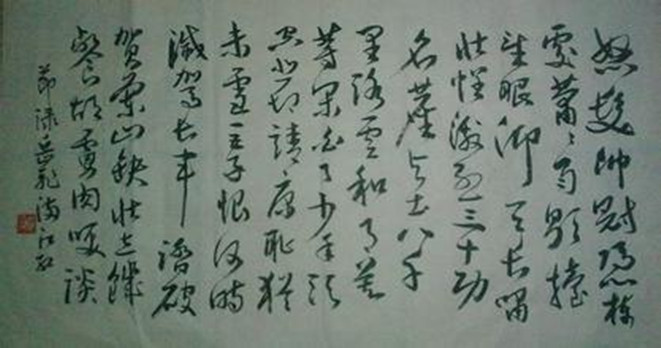 怒髮衝冠憑欄
處蕭蕭雨歇擡
望眼仰天長嘯
壯懷激烈三十功
名塵与土八千
里路雲和月莫
等閒白了少年頭
空悲切靖康恥猶
未雪臣子恨何時
滅駕長車踏破
賀蘭山缺壯志饑
餐胡虜肉笑談
節錄岳飛滿江紅